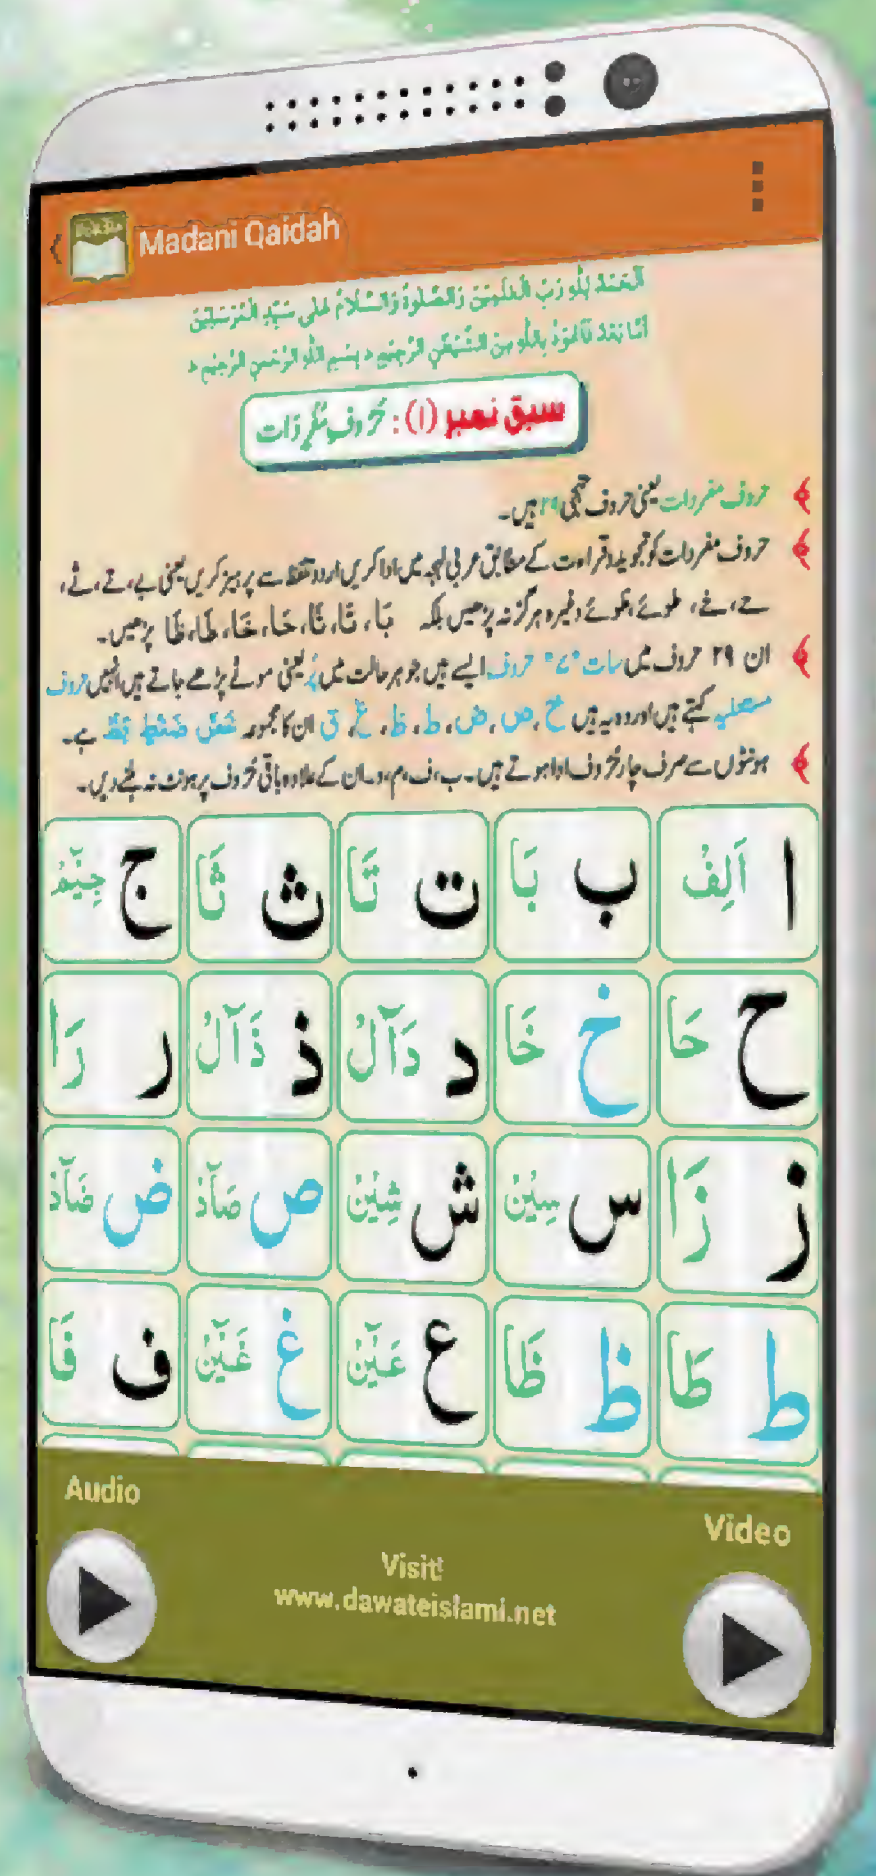 Madani Qaidah
اَلْحَمْدُ لِلّٰهِ رَبِّ الْعٰلَمِیْنَ وَالصَّلٰوۃُ وَالسَّلَامُ عَلٰی سَیِّدِ الْمُرْسَلِیْنَ
اَمَّا بَعْدُ فَاَعُوْذُ بِاللّٰهِ مِنَ الشَّیْطٰنِ الرَّجِیْمِ ؕ بِسْمِ اللّٰهِ الرَّحْمٰنِ الرَّحِیْمِ ؕ
سبق نمبر (۱): حُرُوفِ مُفْرَدَات
حروف مفردات یعنی حروف تہجی ۲۹ ہیں۔
حروف مفردات کو تجوید و قراءت کے مطابق عربی لہجہ میں ادا کریں اردو تلفظ سے پرہیز کریں یعنی بے، تے، ثے،
حے، خے، طوئے، ظوئے وغیرہ ہرگز نہ پڑھیں بلکہ بَا، تَا، ثَا، حَا، خَا، طَا، ظَا پڑھیں۔
ان ۲۹ حروف میں سات "۷" حروف ایسے ہیں جو ہر حالت میں پُر یعنی موٹے پڑھے جاتے ہیں انہیں حروف
مستعلیہ کہتے ہیں اور وہ یہ ہیں خ، ص، ض، ط، ظ، غ، ق ان کا مجموعہ خُصَّ ضَغْطٍ قِظْ ہے۔
ہونٹوں سے صرف چار حُروف ادا ہوتے ہیں۔ ب، ف، م، و۔ ان کے علاوہ باقی حُروف پر ہونٹ نہ ہلنے دیں۔
ا اَلِفْ ب بَا ت تَا ث ثَا ج جِیْٓمْ
ح حَا خ خَا د دَآلْ ذ ذَآلْ ر رَا
ز زَا س سِیْٓنْ ش شِیْٓنْ ص صَآدْ ض ضَآدْ
ط طَا ظ ظَا ع عَیْٓنْ غ غَیْٓنْ ف فَا
Audio
Video
Visit!
www.dawateislami.net